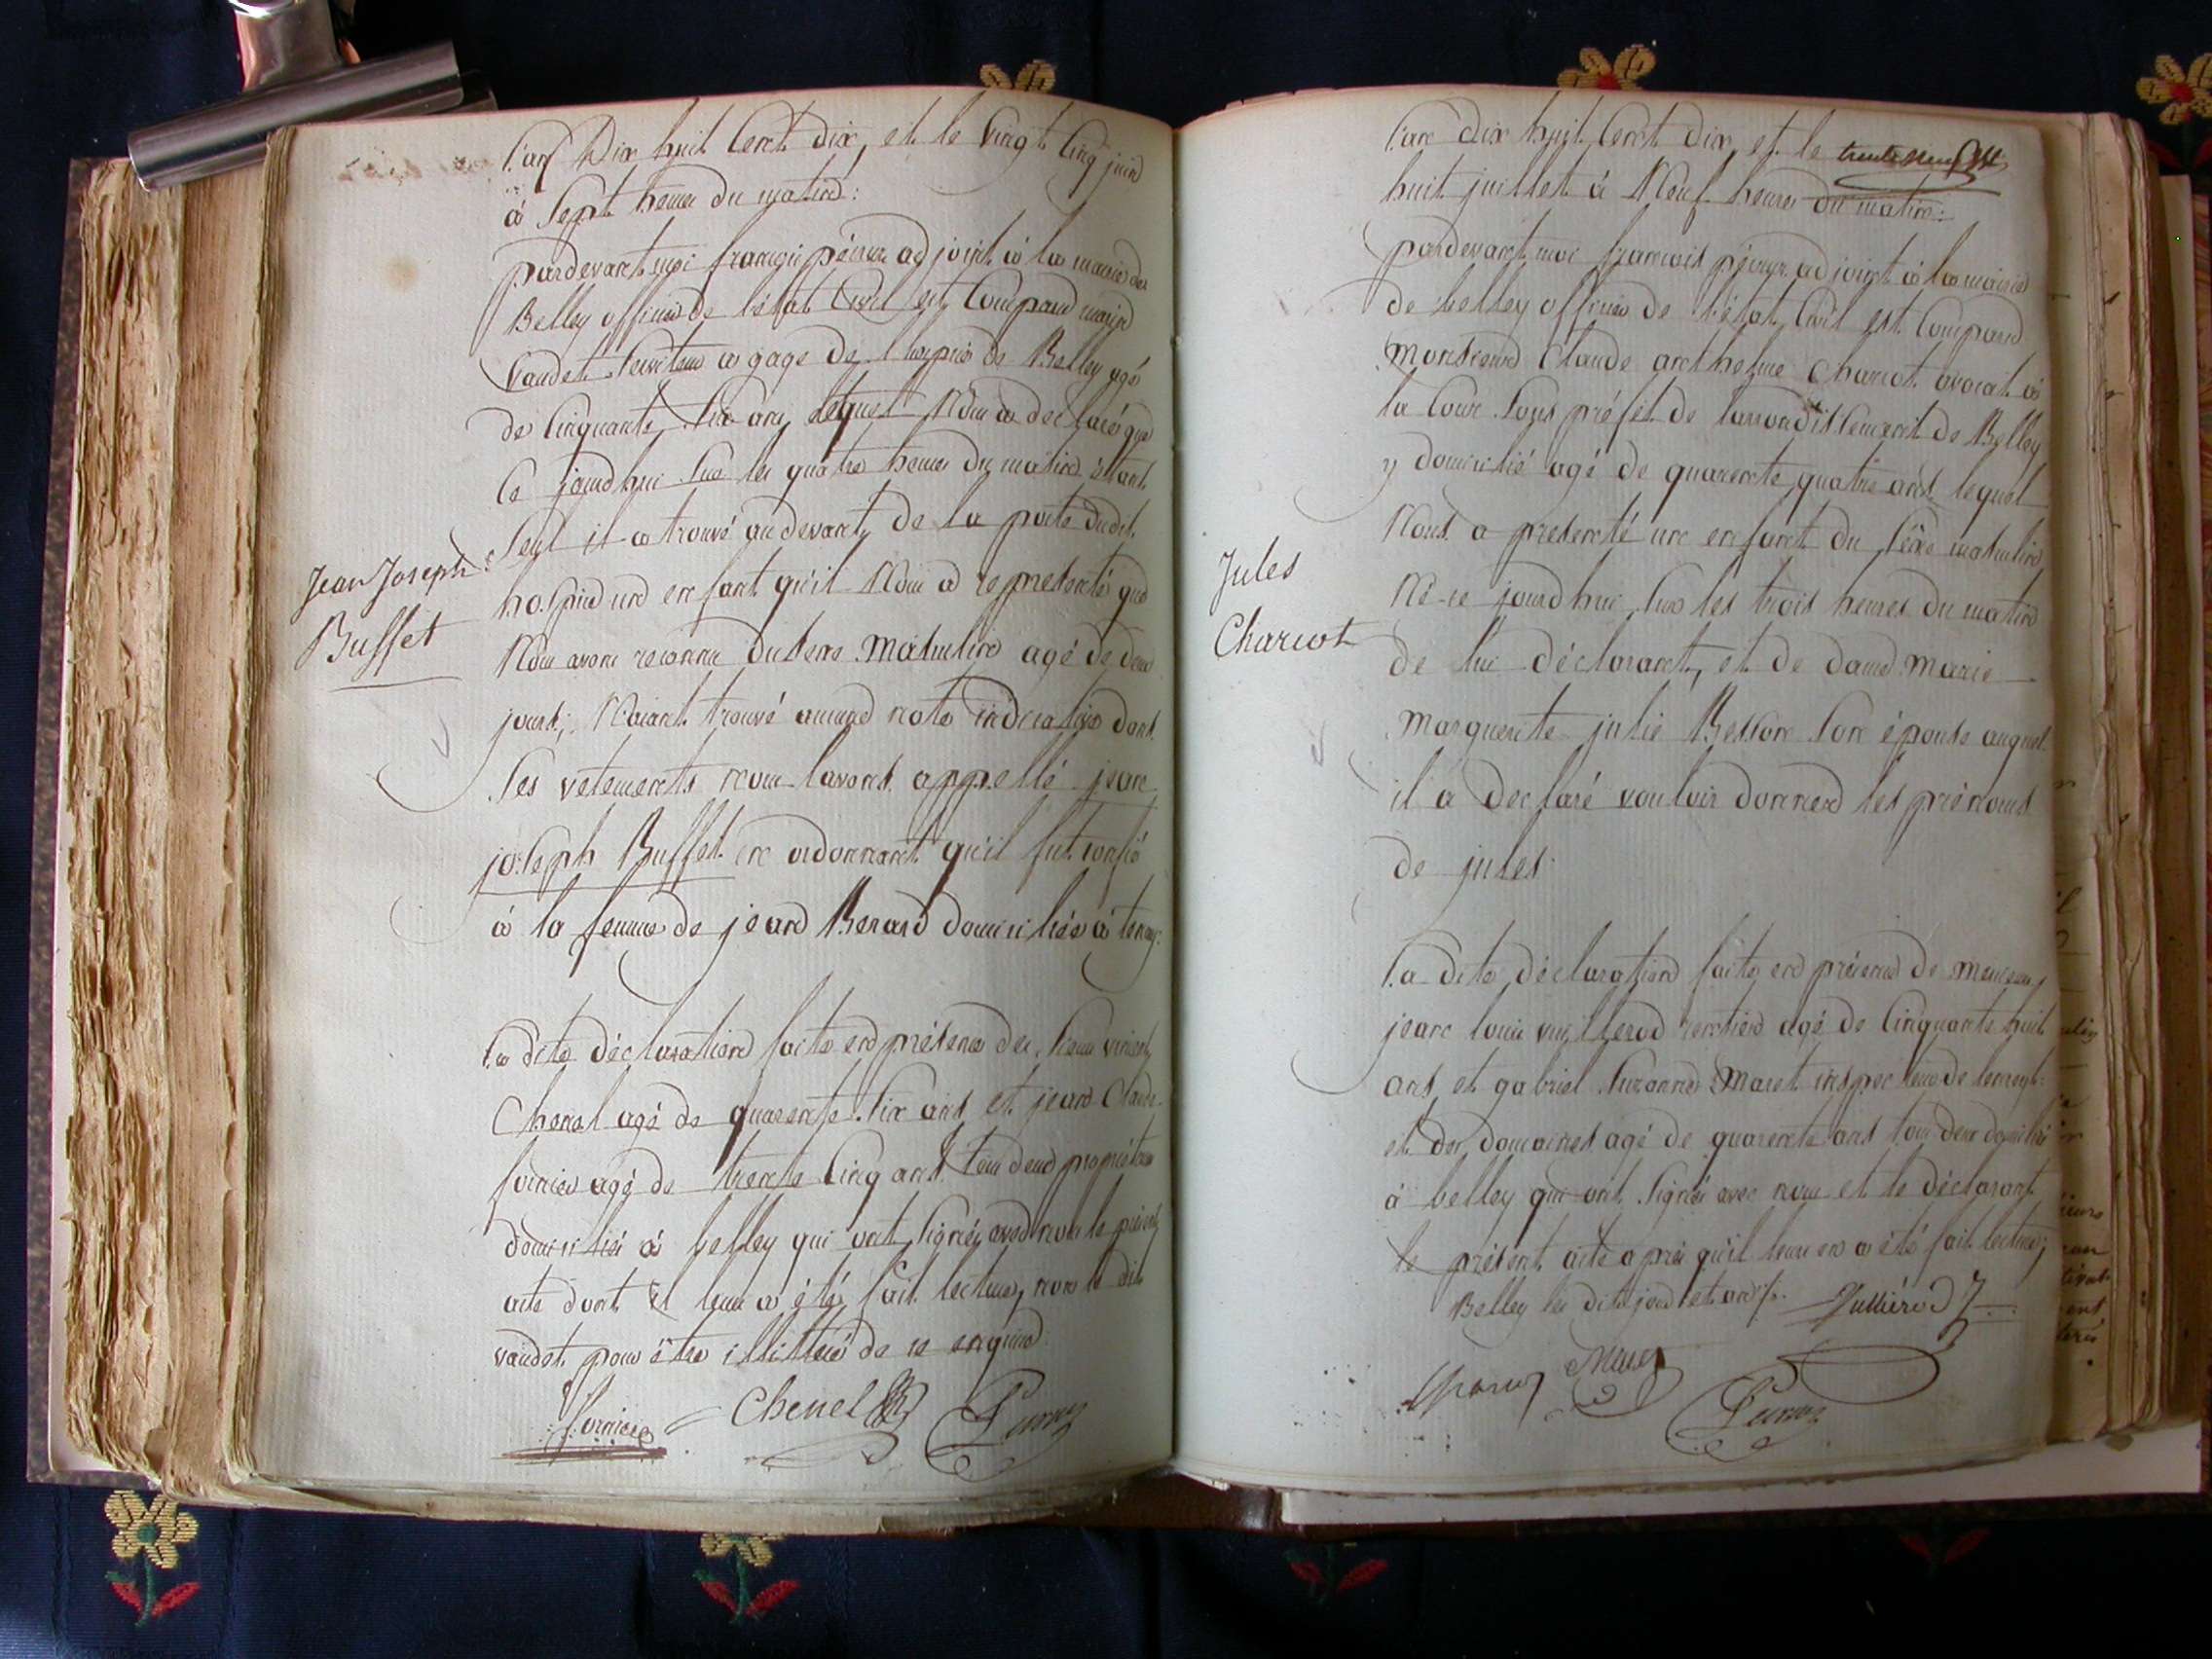 l'an Dix huit Cent Dix, et le vingt Cinq juin
à Sept heures du matin:
pardevant moi françois péseux adjoint à la mairie de
Belley officier de l'état Civil est Comparu
vaudet Serviteur a gage de l'hospice de Belley agé
de Cinquante Six ans lequel Nous a déclaré que
Ce jourd'hui Sur les quatre heures du matin étant
Seul il a trouvé au devant de la porte dudit
Jean Joseph
Buffet
hospice un enfant qu'il Nous a representé que
Nous avons reconnu du sexe Masculin agé de deux
jours; N'aiant trouvé aucune note indicative dans
Ses vetements nous l'avons appellé jean
joseph Buffet en ordonnant qu'il fut confié
à la femme de jean Benard domiciliée à tenay:
la dite déclaration faite en présence des Sieurs vincent
Chenel agé de quarente Six ans et jean Claude
fornier agé de trente Cinq ans tous deux propriétaires
domiciliés à belley qui ont Signés avec nous le présent
acte dont il leur a été fait lecture, non le dit
vaudet pour être illitteré de ce enquis
fornier Chenel
l'an dix huit Cent dix et le
huit juillet à Neuf heures du matin:
pardevant moi francois adjoint à la mairie
de belley officier de l'état Civil est Comparu
Monsieur Claude anthelme Charcot avocat à
la Cour Sous préfet de l'arrondissement de Belley
y domicilié agé de quarente quatre ans lequel
Nous a presenté un enfant du Sexe masculin
Jules
Charcot
Né ce jourd'hui Sur les trois heures du matin
de lui déclarant, et de dame Marie
Marguerite julie Besson Son épouse auquel
il a declaré vouloir donner les prénoms
de jules
la dite déclaration faite en présence de Messieurs
jean louis vuillerod rentier agé de Cinquante huit
ans et gabriel Suzanne Maret inspecteur de l'enregt:
et des domaines agé de quarente ans tous deux domiciliés
à belley qui ont Signés avec nous et le déclarant
le présent acte après qu'il leur en a été fait lecture;
Belley les dits jour et an
Maret